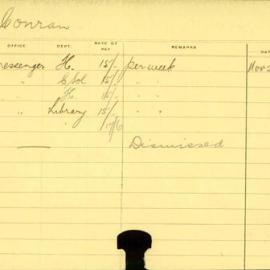 Conran
OFFICE DEPT. RATE OF PAY REMARKS
Messenger H. 15/- per week Nov 2
" " "
" H. 15/- " "
" Library 15/- " "
17/6
Dismissed